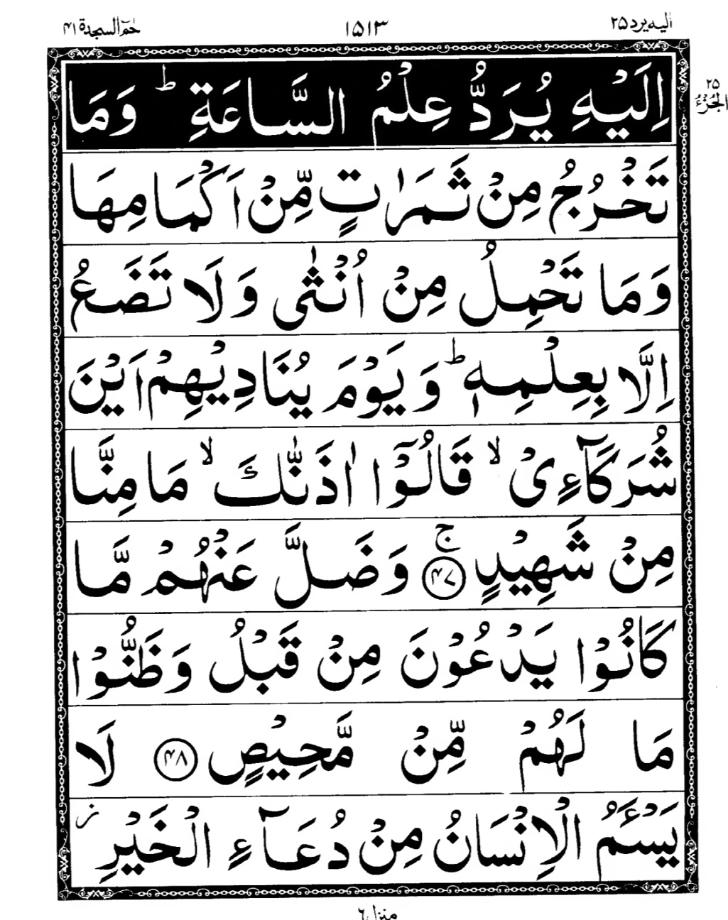 اليه يرد ٢٥ ١٥١٣ حٰمٓ السجدة ٤١
٢٥
الجزء
اِلَيْهِ يُرَدُّ عِلْمُ السَّاعَةِ ؕ وَمَا
تَخْرُجُ مِنْ ثَمَرٰتٍ مِّنْ اَكْمَامِهَا
وَمَا تَحْمِلُ مِنْ اُنْثٰى وَلَا تَضَعُ
اِلَّا بِعِلْمِهٖ ؕ وَيَوْمَ يُنَادِيْهِمْ اَيْنَ
شُرَكَآءِىْ ۙ قَالُوْٓا اٰذَنّٰكَ ۙ مَا مِنَّا
مِنْ شَهِيْدٍ ۚ ﴿٤٧﴾ وَضَلَّ عَنْهُمْ مَّا
كَانُوْا يَدْعُوْنَ مِنْ قَبْلُ وَظَنُّوْا
مَا لَهُمْ مِّنْ مَّحِيْصٍ ﴿٤٨﴾ لَا
يَسْـَٔمُ الْاِنْسَانُ مِنْ دُعَآءِ الْخَيْرِ ز
منزل ٦